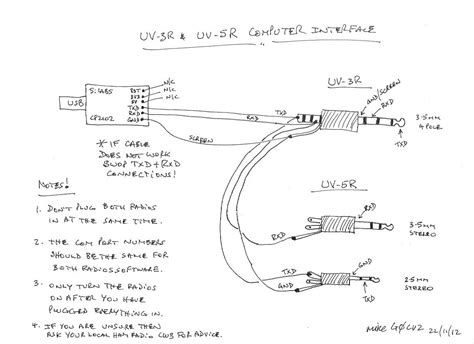 UV-3R & UV-5R COMPUTER INTERFACE
UV-3R
USB
SILABS
CP2102
RST
3V3
5V
TXD
RXD
GND
N/C
N/C
N/C
TXD
RXD
SCREEN
GND/SCREEN
RXD
TXD
3.5mm
4 POLE
* IF CABLE
DOES NOT WORK
SWOP TXD+RXD
CONNECTIONS!
UV-5R
RXD
RXD
3.5mm
STEREO
TXD
GND
GND
TXD
2.5mm
STEREO
NOTES!
1. DON'T PLUG BOTH RADIOS
IN AT THE SAME TIME.
2. THE COM PORT NUMBERS
SHOULD BE THE SAME FOR
BOTH RADIOS SOFTWARE.
3. ONLY TURN THE RADIOS
ON AFTER YOU HAVE
PLUGGED EVERYTHING IN.
4. IF YOU ARE UNSURE THEN
ASK YOUR LOCAL HAM RADIO CLUB FOR ADVICE.
MIKE 22/11/12